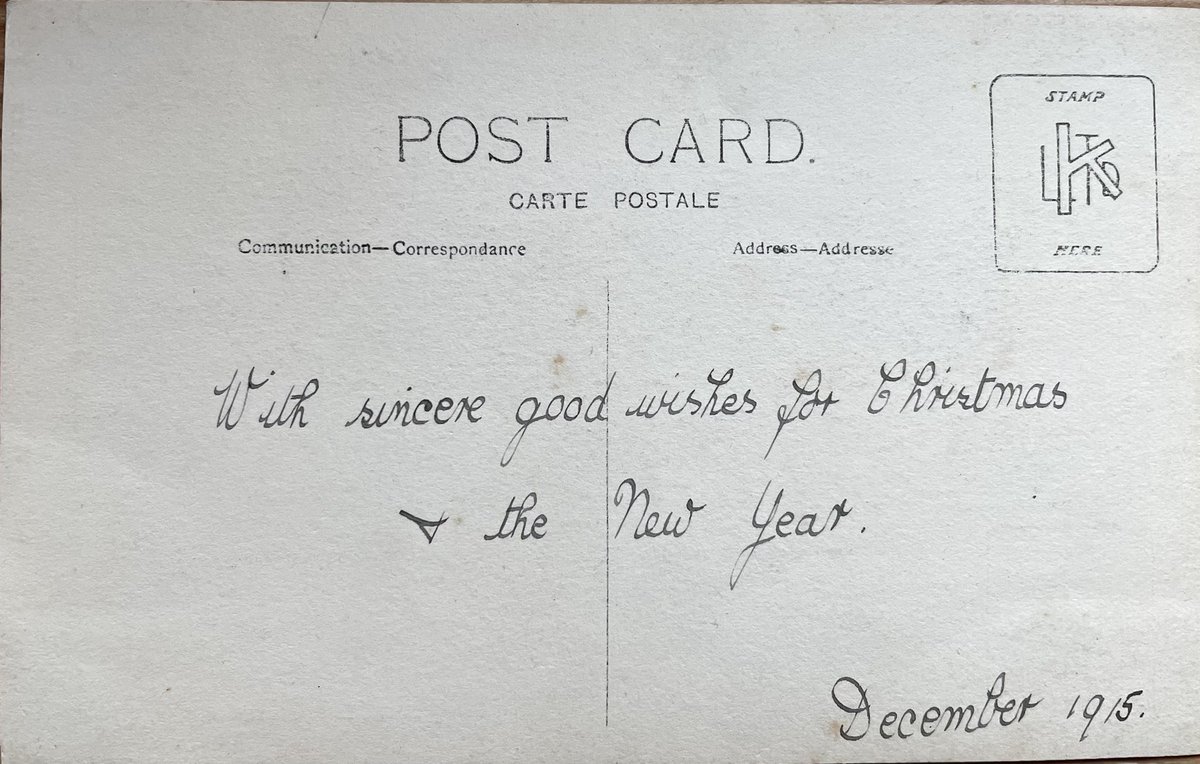 POST CARD.
CARTE POSTALE
Communication—Correspondance
Address—Addresse
STAMP
HERE
With sincere good wishes for Christmas
& the New Year.
December 1915.